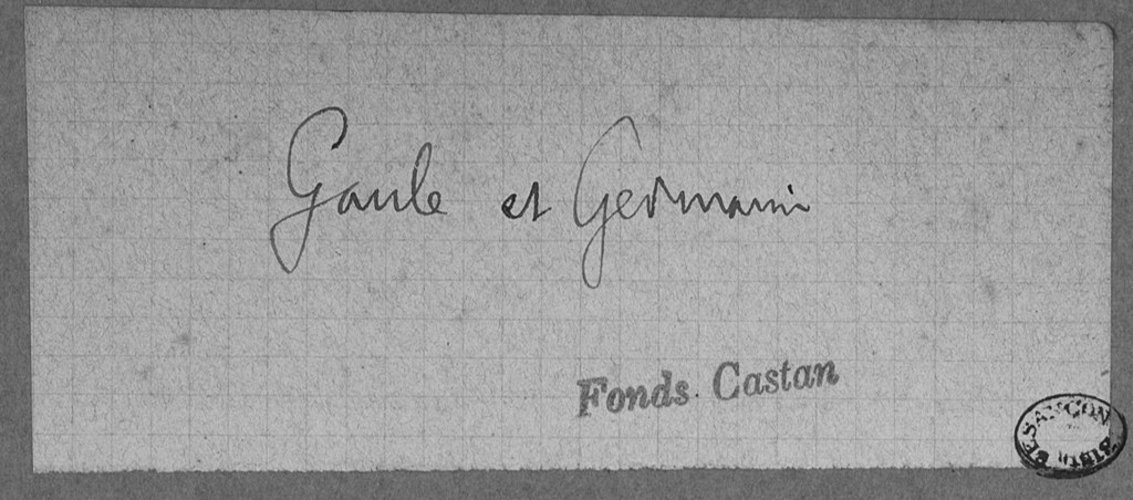 Gaule et Germain
Fonds Castan
BESANÇON